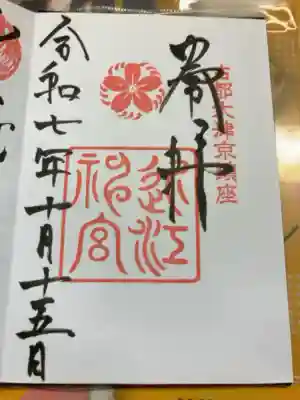 古都大津京鎮座
奉拝
近江神宮
令和七年十月十五日